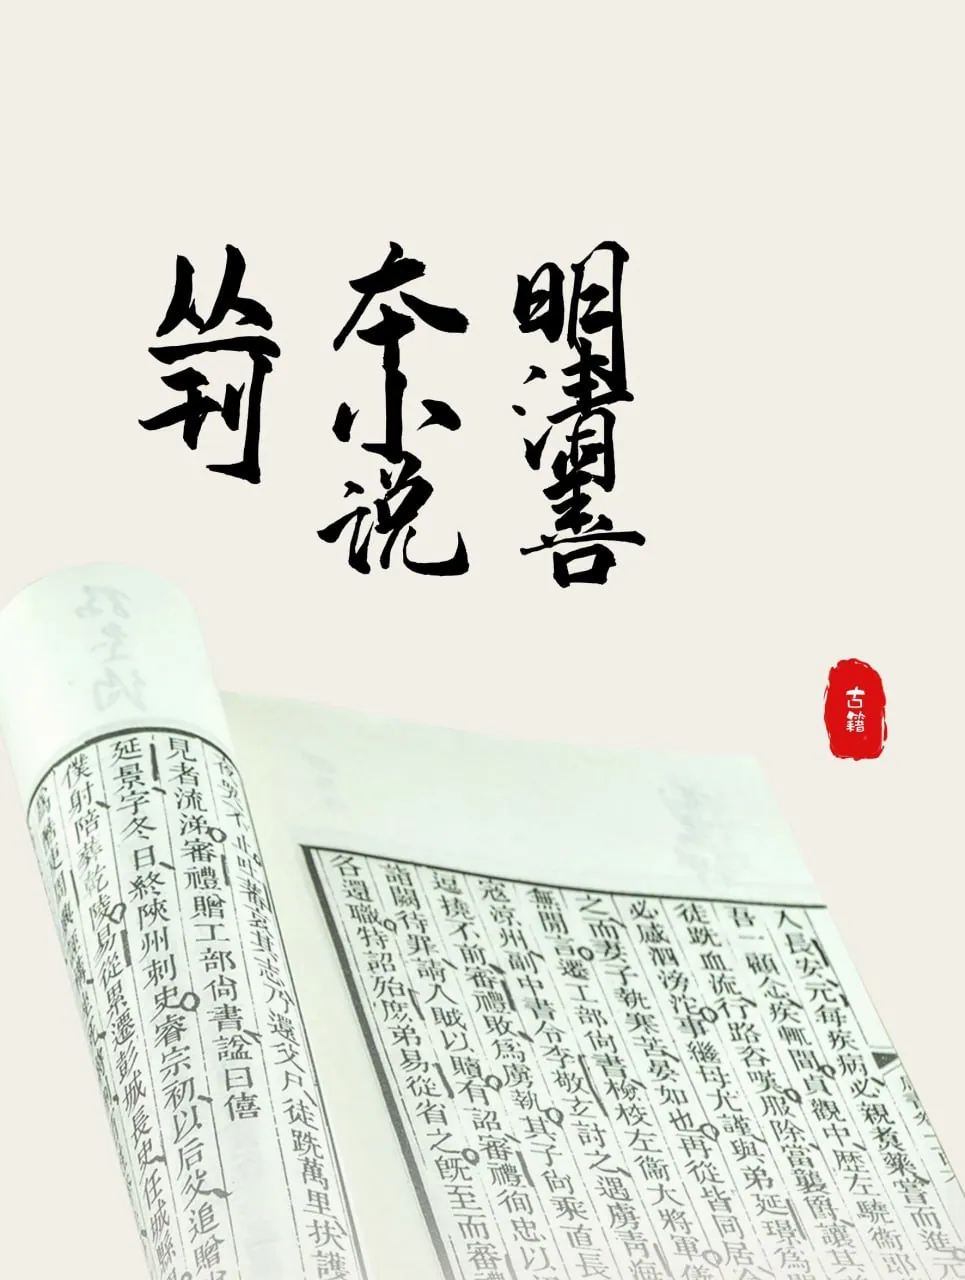 明清善
本小说
丛刊
古籍
人長安元每疾病必親煑藥嘗而進元
吾一顧念疾輒間貞觀中歴左驍衞郎
徒跣血流行路咨嘆服除當襲爵讓其
必感泗滂沱事繼母尤謹與弟延景為
之而妻子執寒苦晏如也再從皆同居
無閒言遷工部尚書檢校左衞大將軍
寇涼州副中書令李敬玄討之遇虜青海
逗撓不前審禮敗為虜執其子尚乘直長
詣闕待罪請人賊以贖有詔審禮徇忠以
各還職特詔殆庶弟易從省之旣至而審
徒跣萬里扶護
見者流涕審禮贈工部尚書諡曰僖
延景字冬日終陝州刺史睿宗初以后父追贈
僕射陪葬乾陵易從累遷彭城長史任城縣